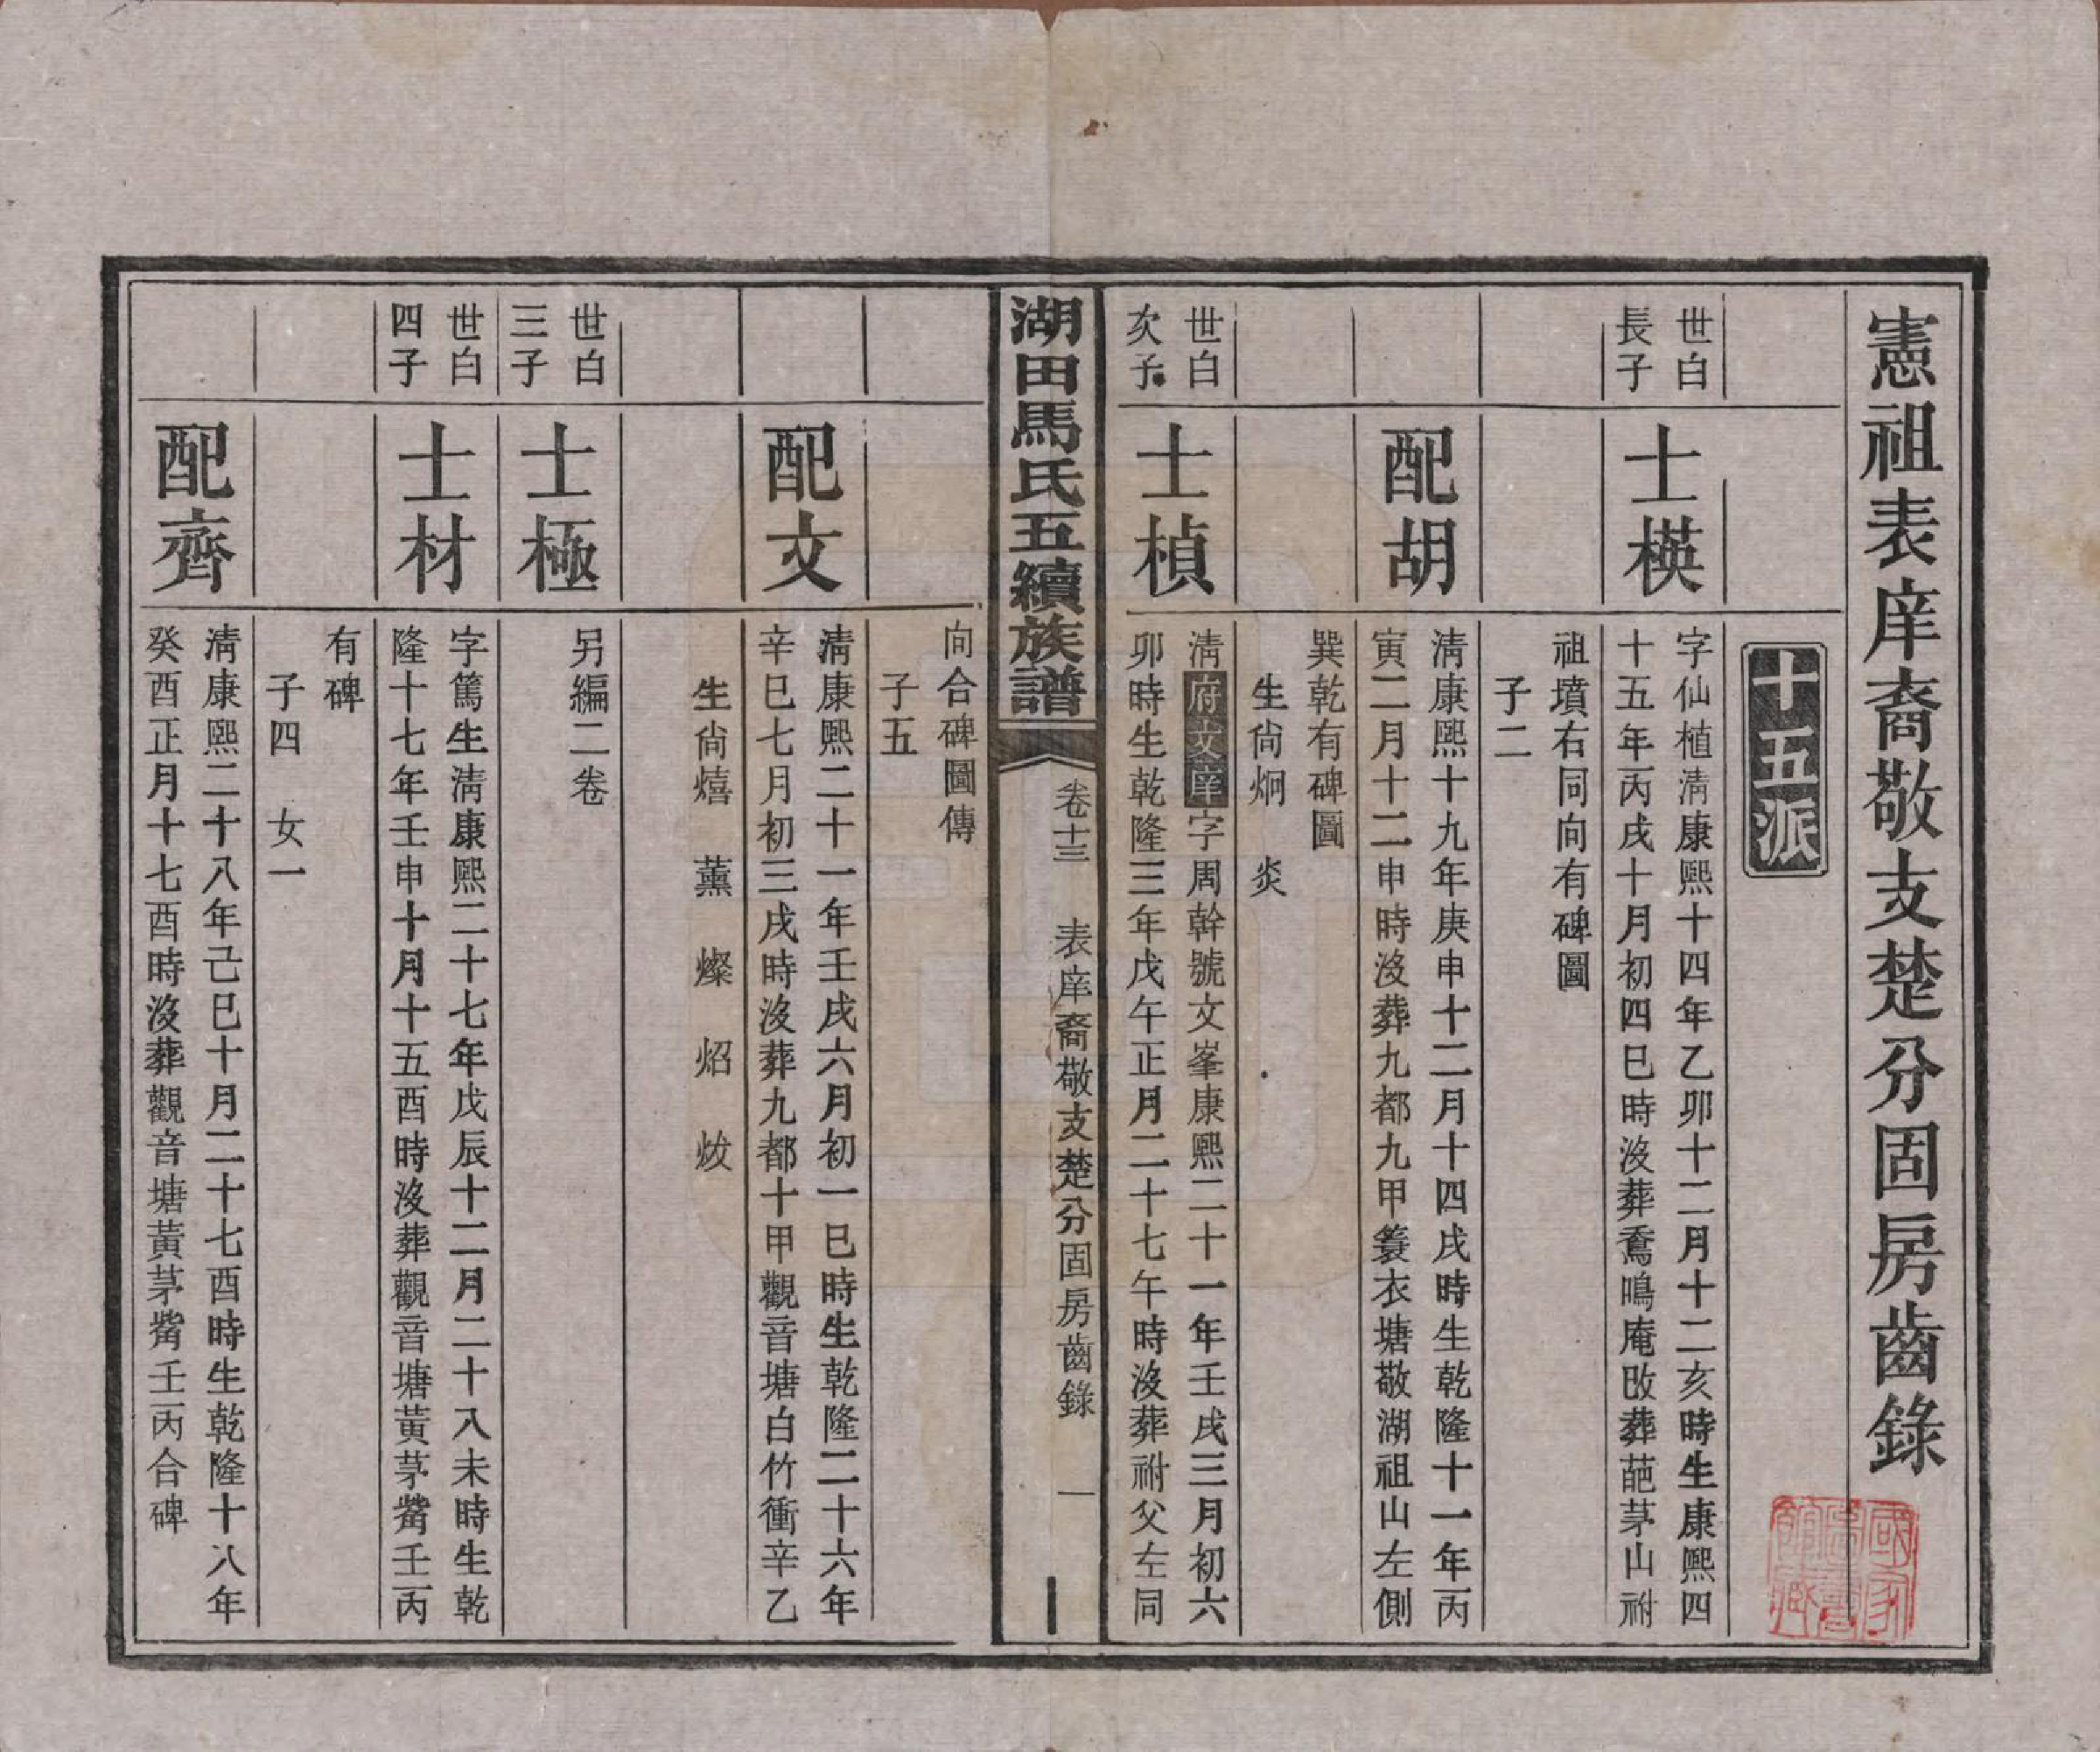 憲祖表庠裔敬支楚分固房齒錄
十五派
世白
長子
士楧
字仙植清康熙十四年乙卯十二月十二亥時生康熙四
十五年丙戌十月初四巳時沒葬鴌鳴庵改葬葩茅山祔
祖墳右同向有碑圖
子二
配胡
清康熙十九年庚申十二月十四戌時生乾隆十一年丙
寅二月十二申時沒葬九都九甲簑衣塘敬湖祖山左側
巽乾有碑圖
生尙炯 炎
世白
次子
士楨
清府文庠字周幹號文峯康熙二十一年壬戌三月初六
卯時生乾隆三年戊午正月二十七午時沒葬祔父左同
湖田馬氏五續族譜
卷十三 表庠裔敬支楚分固房齒錄 一
向合碑圖傳
子五
配文
清康熙二十一年壬戌六月初一巳時生乾隆二十六年
辛巳七月初三戌時沒葬九都十甲觀音塘白竹衝辛乙
生尙熺 薰 燦 炤 炦
世白
三子
士極
另編二卷
世白
四子
士材
字篤生清康熙二十七年戊辰十二月二十八未時生乾
隆十七年壬申十月十五酉時沒葬觀音塘黃茅觜壬丙
有碑
子四 女一
配齊
清康熙二十八年己巳十月二十七酉時生乾隆十八年
癸酉正月十七酉時沒葬觀音塘黃茅觜壬丙合碑
國家圖書館藏